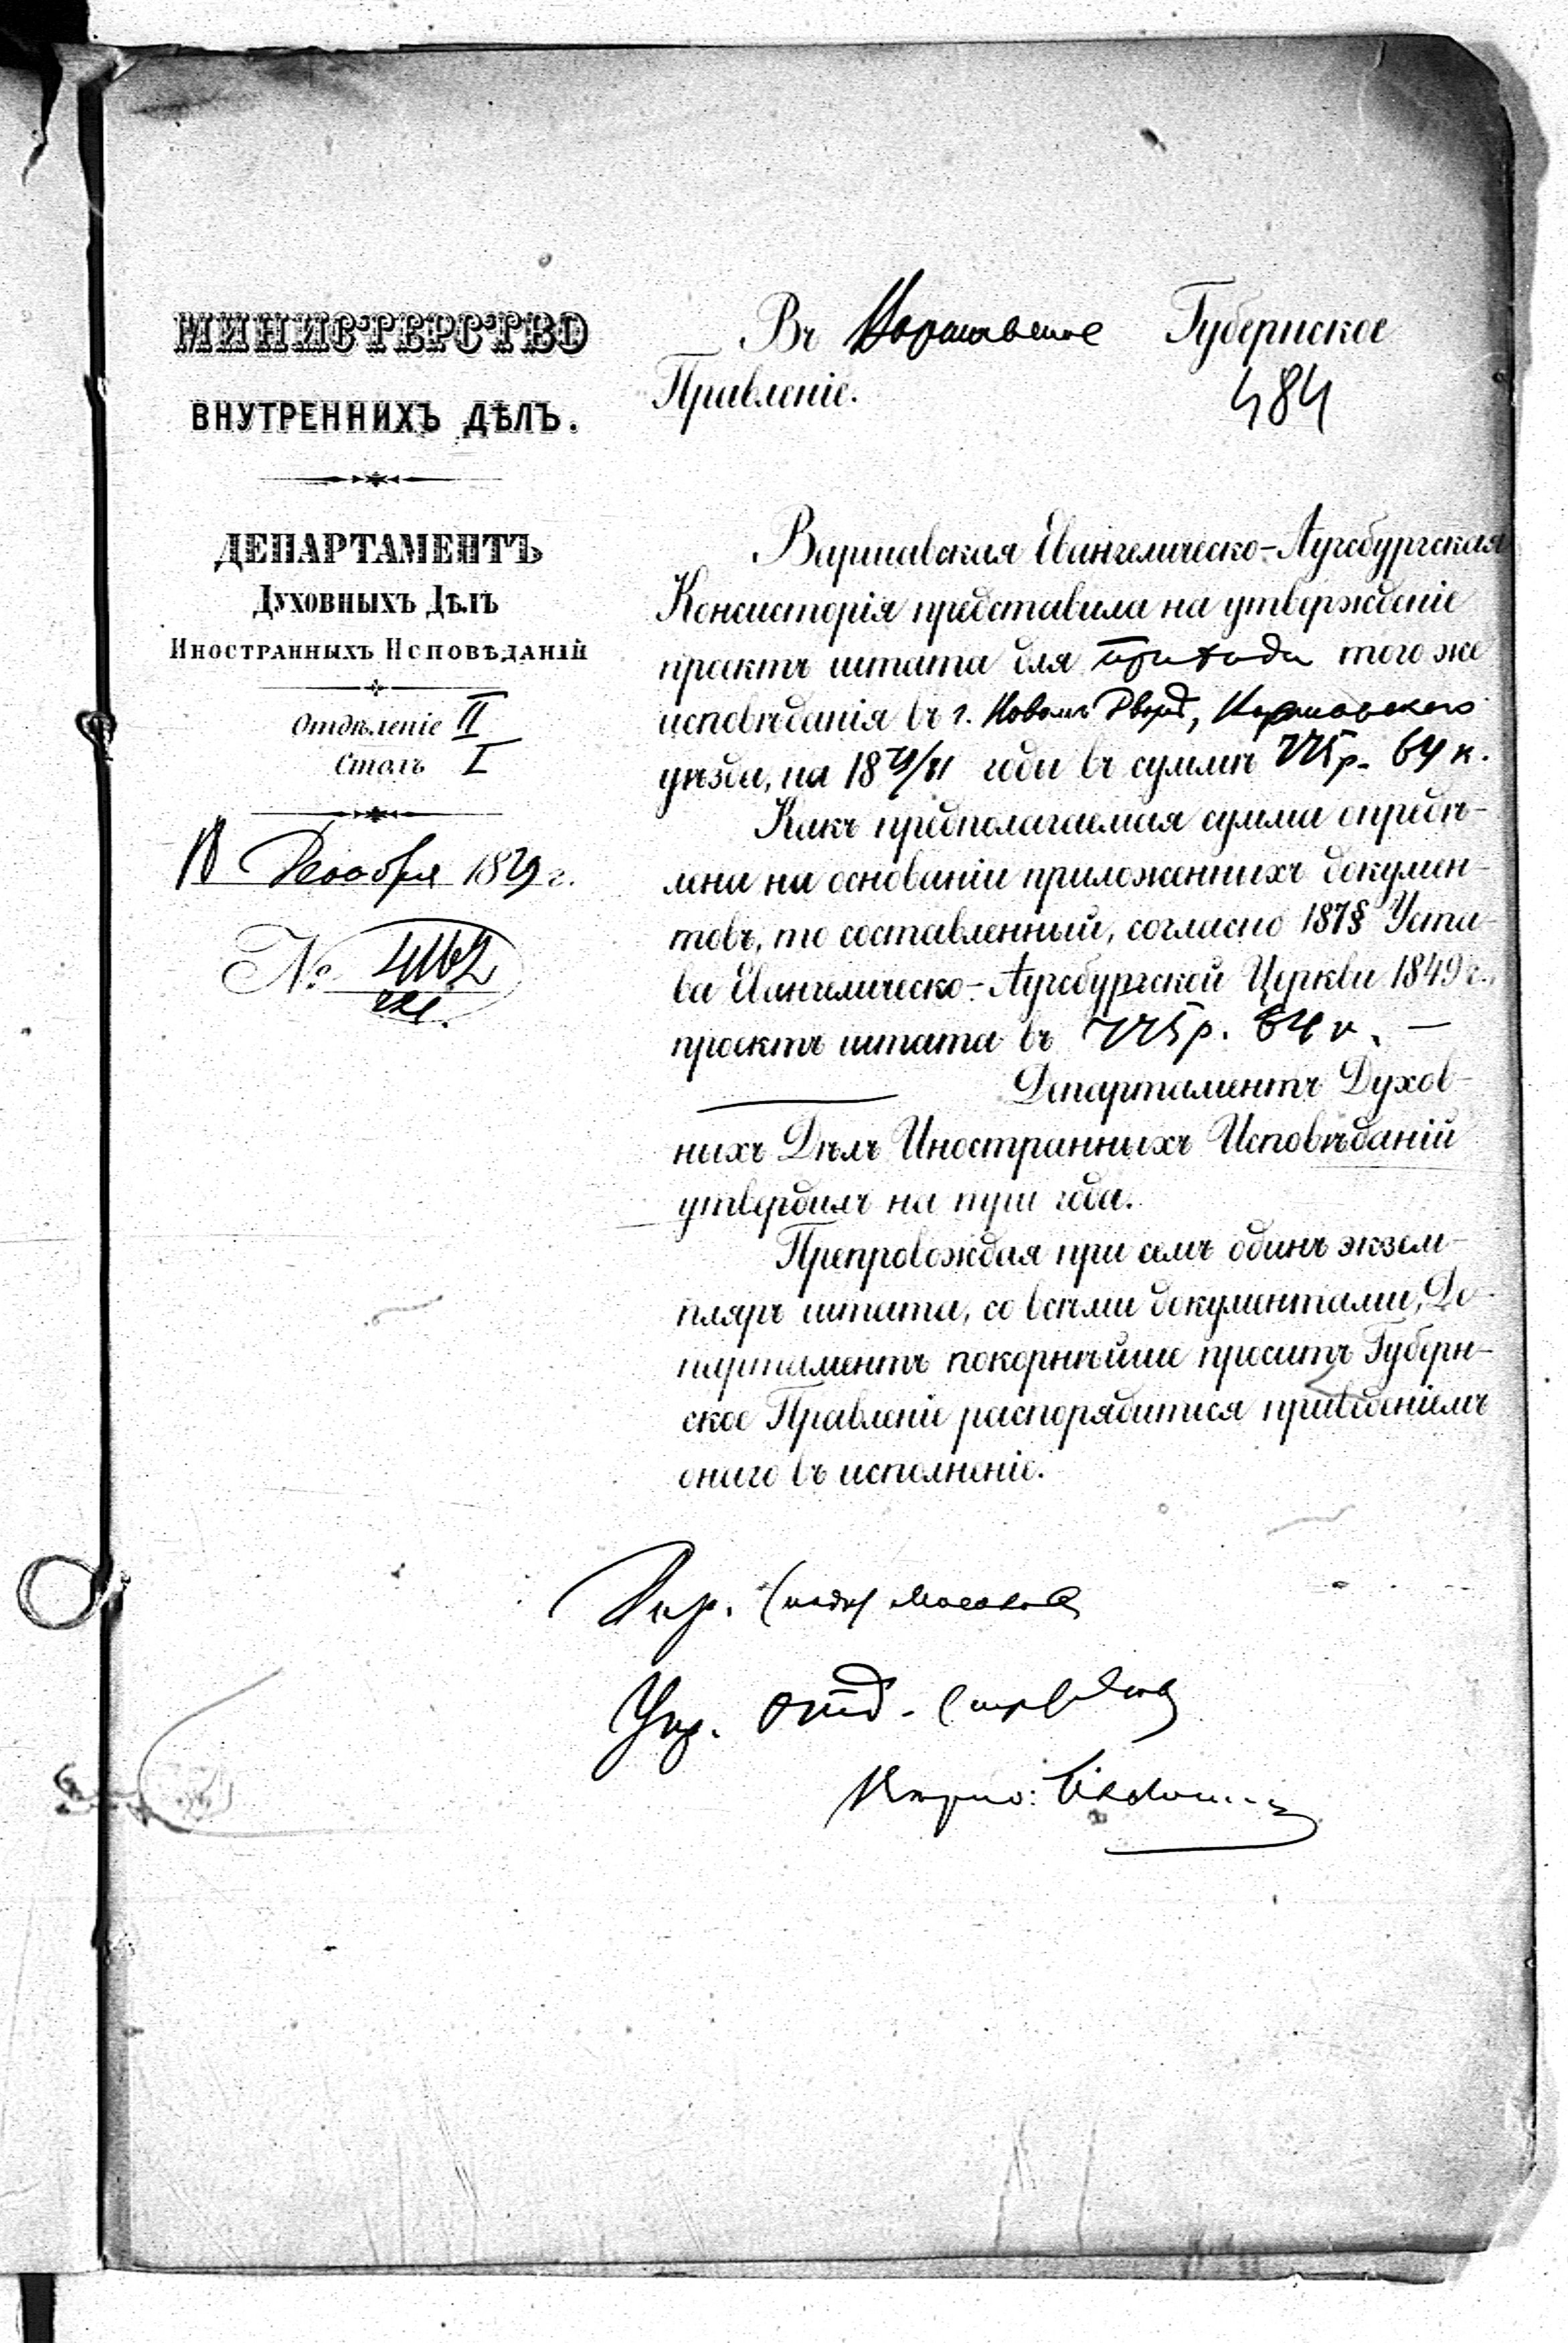 МИНИСТЕРСТВО
ВНУТРЕННИХЪ ДѢЛЪ.
ДЕПАРТАМЕНТЪ
ДУХОВНЫХЪ ДѢЛЪ
ИНОСТРАННЫХЪ ИСПОВѢДАНІЙ
Отдѣленіе II
Столъ I
Декабря 1879 г.
№ 4162
Въ Варшавское Губернское
Правленіе.
484
Варшавская Евангелическо-Аугсбургская
Консисторія представила на утвержденіе
проектъ штата для прихода того же
исповѣданія въ г. Новомъ Дворѣ, Варшавскаго
уѣзда, на 1879/81 годы въ суммѣ 775 р. 64 к.
Какъ предполагаемая сумма опредѣ-
лена на основаніи приложенныхъ докумен-
товъ, то составленный, согласно 187§ Уста-
ва Евангелическо-Аугсбургской Церкви 1849 г.,
проектъ штата въ 775 р. 64 к. —
Департаментъ Духов-
ныхъ Дѣлъ Иностранныхъ Исповѣданій
утвердилъ на три года.
Препровождая при семъ одинъ экзем-
пляръ штата, со всѣми документами, Де-
партаментъ покорнѣйше проситъ Губерн-
ское Правленіе распорядиться приведеніемъ
онаго въ исполненіе.
Дир. Мосолов
Упр. Отд.